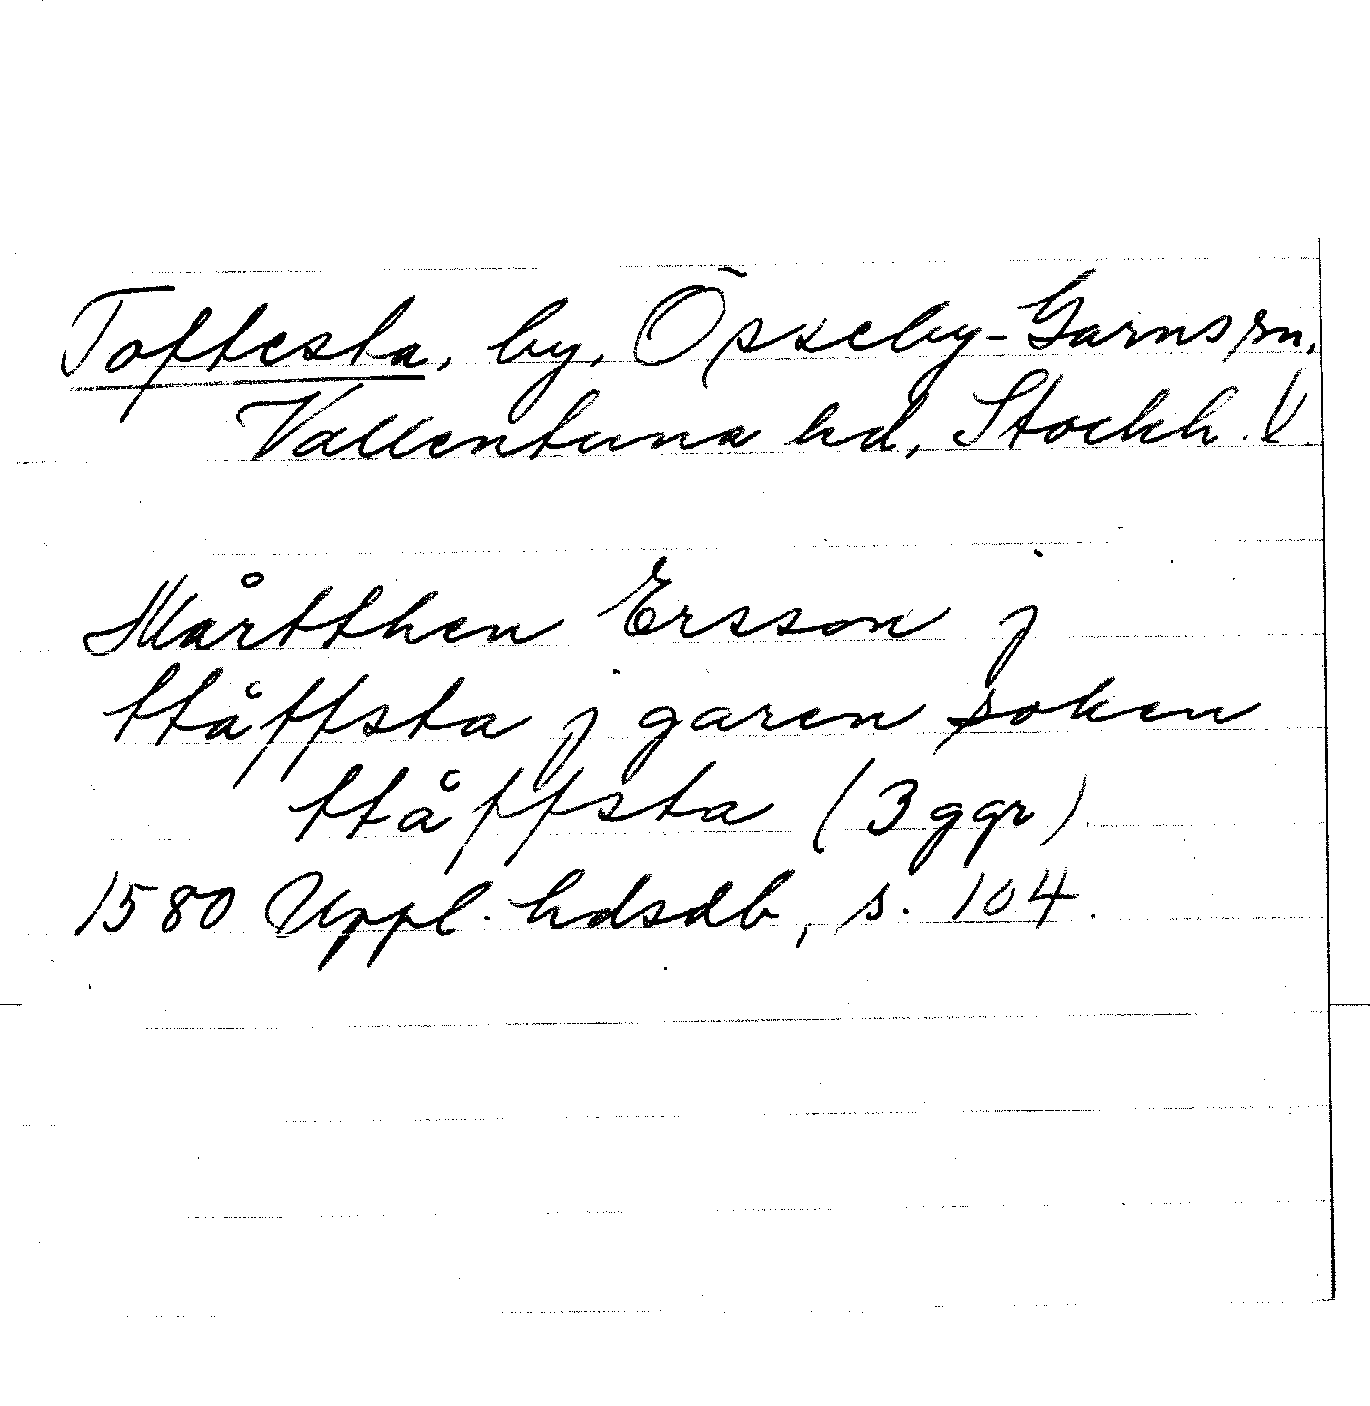 Toftesta, by, Össeby-Garns sn,
Vallentuna hd, Stockh. l
Mårtthen Ersson j
ttåffsta j garen soken
ttåffsta (3 ggr)
1580 Uppl. hdsdb, s. 104.